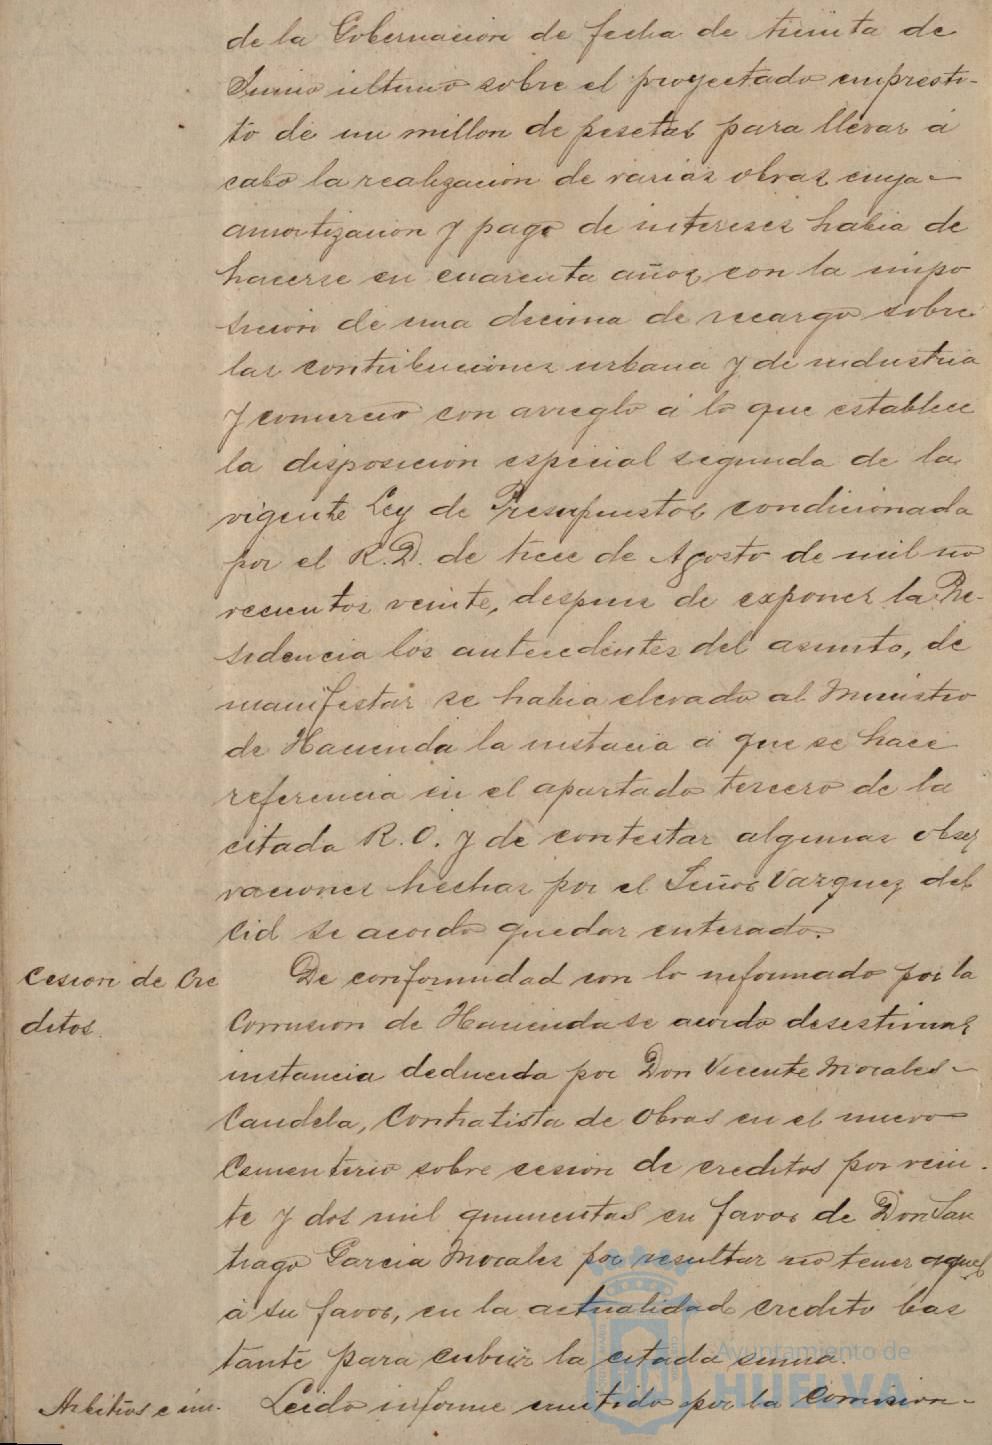 de la Gobernacion de fecha de treinta de
Junio ultimo sobre el proyectado empresti-
to de un millon de pesetas para llevar á
cabo la realización de varias obras cuya -
amortización y pago de intereses habia de
hacerse en cuarenta años, con la impo
sicion de una decima de recargo sobre
las contribuciones urbana y de industria
y comercio con arreglo á lo que establece
la disposicion especial segunda de la
vigente Ley de Presupuestos condicionada
por el R.D. de trece de Agosto de mil no
vecientos veinte, despues de exponer la Pre-
sidencia los antecedentes del asunto, de
manifestar se habia elevado al Ministro
de Hacienda la instacia á que se hace
referencia en el apartado tercero de la
citada R.O. y de contestar algunas obser
vaciones hechas por el Señor Vazquez del
Cid se acordo quedar enterado.
Cesion de Cre
ditos.
De conformidad con lo informado por la
Comision de Hacienda se acordo desestimar
instancia deducida por Don Vicente Morales -
Candela, Contratista de Obras en el nuevo
Cementerio sobre cesion de creditos por vein-
te y dos mil quinientas en favor de Don San
tiago Garcia Morales por resultar no tener aquel
á su favor, en la actualidad credito bas
tante para cubrir la citada suma.
Arbitrios é im-
Leido informe emitido por la Comision -
Ayuntamiento de
HUELVA